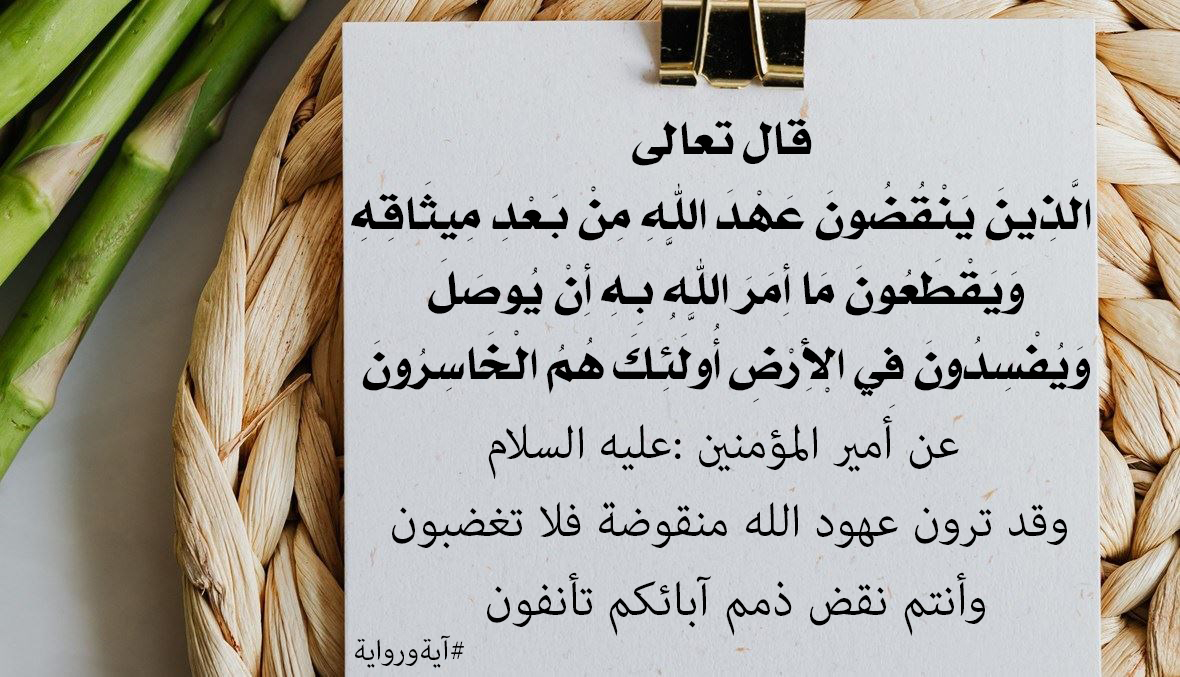 قال تعالى
الَّذِينَ يَنْقُضُونَ عَهْدَ اللَّهِ مِنْ بَعْدِ مِيثَاقِهِ
وَيَقْطَعُونَ مَا أَمَرَ اللَّهُ بِهِ أَنْ يُوصَلَ
وَيُفْسِدُونَ فِي الْأَرْضِ أُولَئِكَ هُمُ الْخَاسِرُونَ
عن أمير المؤمنين :عليه السلام
وقد ترون عهود الله منقوضة فلا تغضبون
وأنتم نقض ذمم آبائكم تأنفون
#آيةورواية